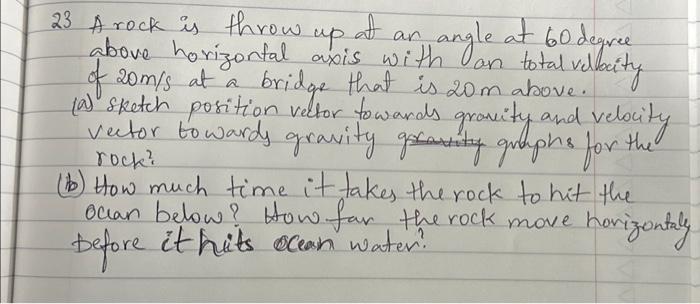 23 A rock is throw up at an angle at 60 degree
above horizontal axis with an total velocity
of 20m/s at a bridge that is 20m above.
(a) sketch position vector towards gravity and velocity
vector towards gravity gravity graphs for the
rock?
(b) How much time it takes the rock to hit the
ocean below? How far the rock move horizontaly
before it hits ocean water?